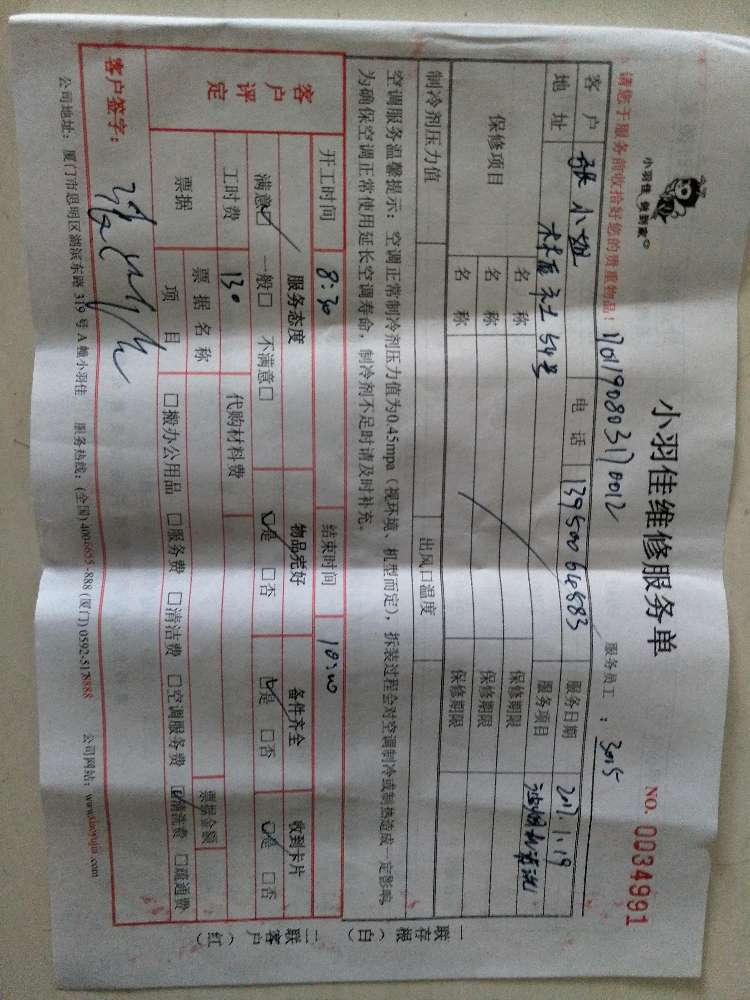 小羽佳 您到家
小羽佳维修服务单
NO. 0034991
服务员工 ： 3015
请您于服务前收拾好您的贵重物品！
客 户 张小姐 电 话 13950064583 服务日期 2017.1.19
地 址 54号 服务项目 油烟机清洗
保修项目 名 称 保修期限
名 称 保修期限
名 称 保修期限
制冷剂压力值 出风口温度
空调服务温馨提示：空调正常制冷剂压力值为0.45mpa（视环境、机型而定），拆装过程会对空调制冷或制热造成一定影响，
为确保空调正常使用延长空调寿命，制冷剂不足时请及时补充。
客户评定
开工时间 8:30 结束时间 10:00
服务态度 物品完好 备件齐全 收到卡片
满意☑ 一般□ 不满意□ ☑是 □否 ☑是 □否 ☑是 □否
工时费 130 代购材料费
票据 票据名称 票据金额
项 目 □搬办公用品 □服务费 □清洁费 □空调服务费 ☑清洗费 □疏通费
客户签字：
公司地址：厦门市思明区湖滨东路 319 号 A 幢小羽佳 服务热线：(全国) 400-6655-888 (厦门) 0592-5178888 公司网站：www.xiaoyujia.com
一联存根（白）
二联客户（红）